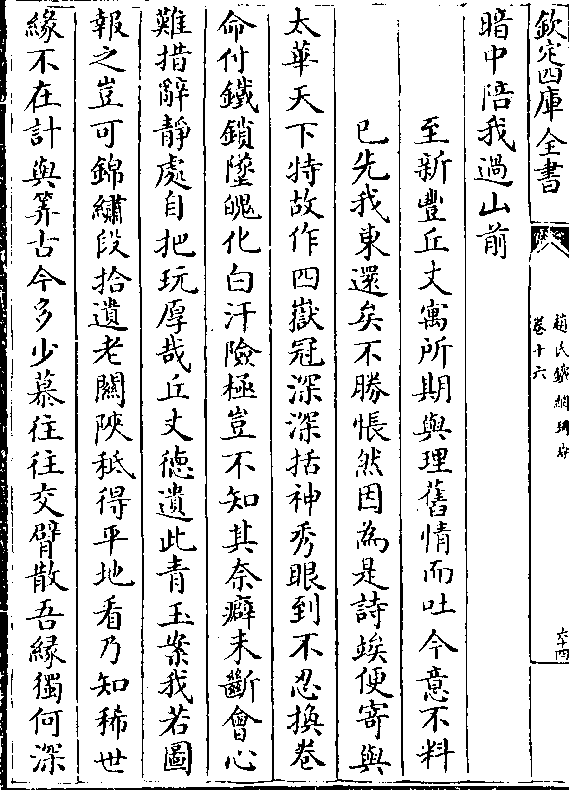 欽定四庫全書
趙氏鐵網珊瑚
卷十六
六十四
暗中陪我過山前
至新豐丘丈寓所期與理舊情而吐今意不料
已先我東還矣不勝悵然因為是詩竢便寄與
太華天下特故作四嶽冠深深括神秀眼到不忍換卷
命付鐵鎖墜魄化白汗險極豈不知其奈癖未斷會心
難措辭靜處自把玩厚哉丘丈德遺此青玉案我若圖
報之豈可錦繡段拾遺老關陝秪得平地看乃知稀世
緣不在計與筭古今多少慕往往交臂散吾緣獨何深